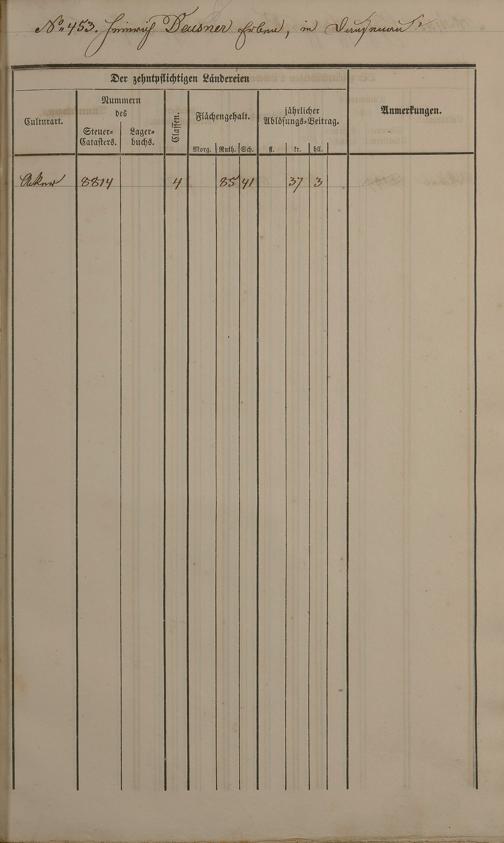 No. 453. Heinrich Deusner Erben, in Dausenau
Der zehntpflichtigen Ländereien
Culturart.
Nummern
des
Steuer-
Catasters.
Lager-
buchs.
Classen.
Flächengehalt.
Morg. Ruth. Sch.
jährlicher
Ablösungs-Beitrag.
fl. kr. hll.
Anmerkungen.
Aker 8814 4 85 41 37 3